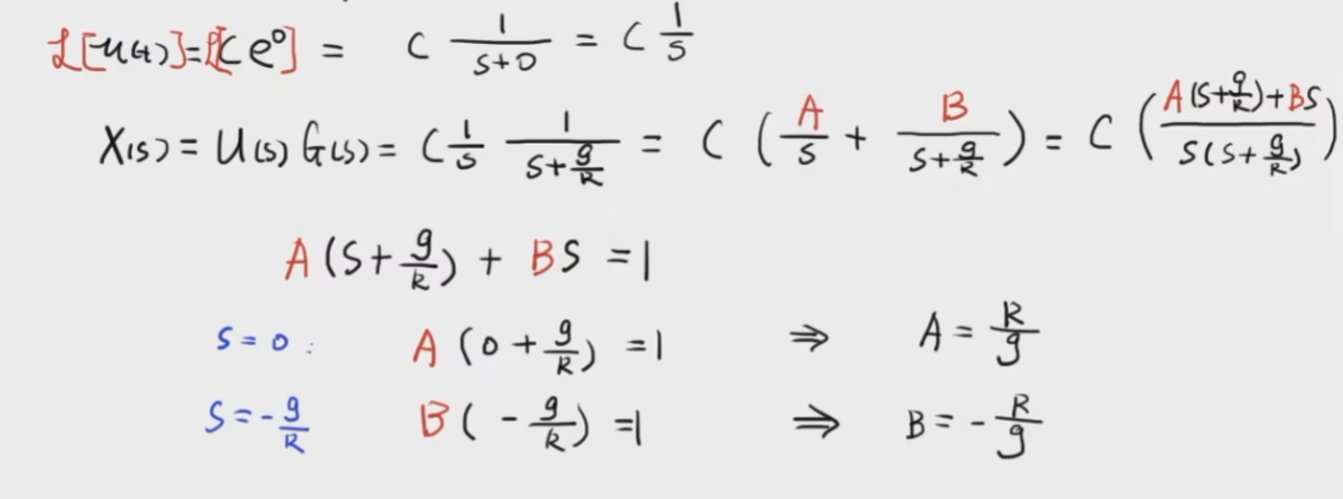 ℒ[u(t)]=ℒ[Ce⁰] = C 1/(s+0) = C 1/s
X(s) = U(s) G(s) = C 1/s 1/(s+g/R) = C (A/s + B/(s+g/R)) = C (A(s+g/R)+Bs / s(s+g/R))
A(s+g/R) + Bs = 1
s = 0 : A(0+g/R) = 1 ⇒ A = R/g
s = -g/R B(-g/R) = 1 ⇒ B = -R/g